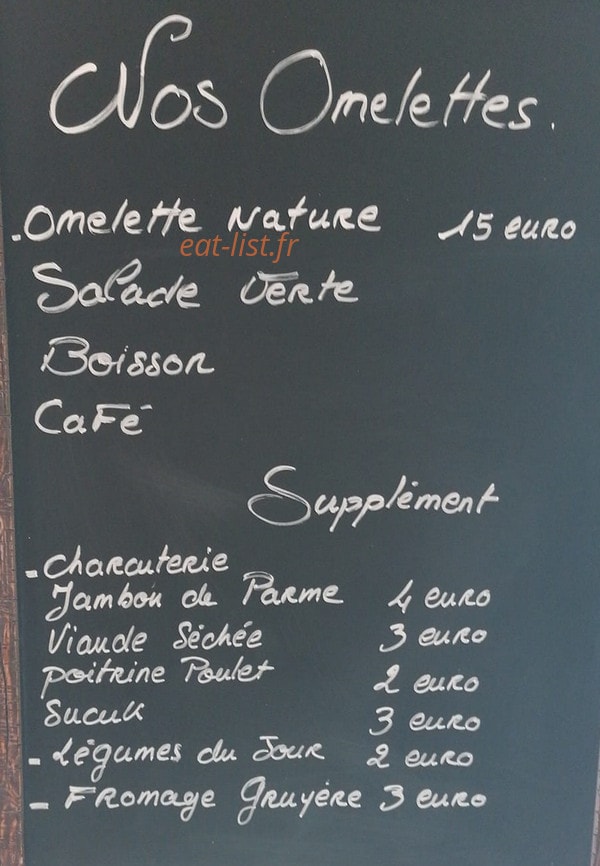 Nos Omelettes.
.Omelette Nature 15 euro
eat-list.fr
Salade Verte
Boisson
Café
Supplément
- Charcuterie
Jambon de Parme 4 euro
Viande Séchée 3 euro
poitrine Poulet 2 euro
Sucuk 3 euro
- Légumes du Jour 2 euro
- Fromage Gruyère 3 euro